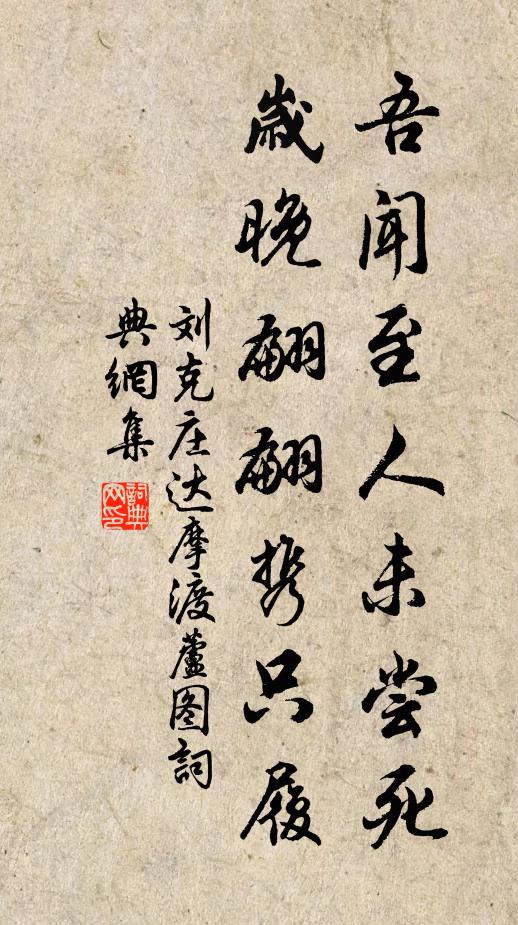 吾闻至人未尝死
岁晚翩翩携只履
刘克庄达摩渡蘆图詞
典網集
詞典网印